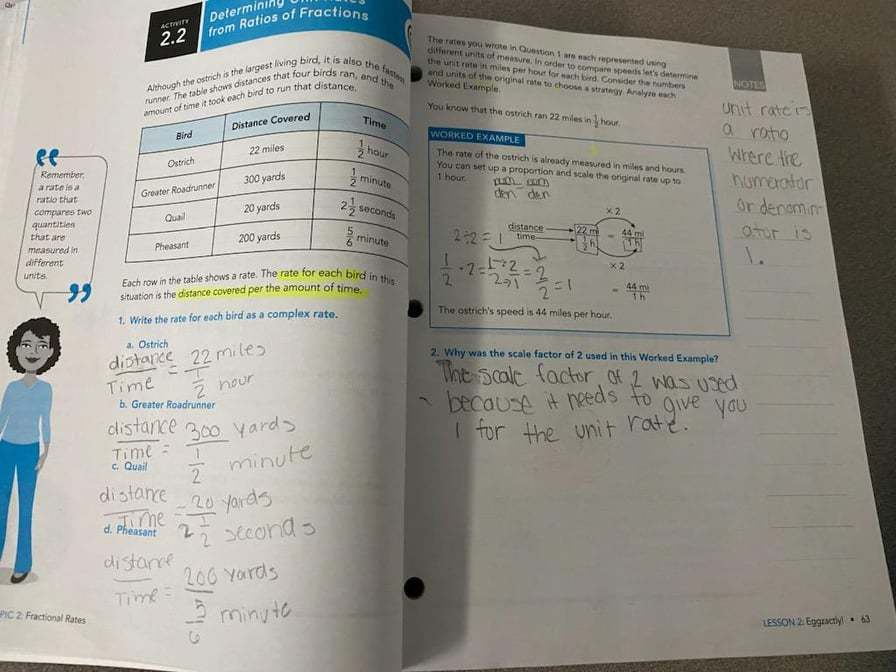 ACTIVITY
2.2
Determining Unit Rates
from Ratios of Fractions
Although the ostrich is the largest living bird, it is also the fastest
runner. The table shows distances that four birds ran, and the
amount of time it took each bird to run that distance.
Bird Distance Covered Time
Ostrich 22 miles 1/2 hour
Greater Roadrunner 300 yards 1/2 minute
Quail 20 yards 2 1/2 seconds
Pheasant 200 yards 5/6 minute
Remember,
a rate is a
ratio that
compares two
quantities
that are
measured in
different
units.
Each row in the table shows a rate. The rate for each bird in this
situation is the distance covered per the amount of time.
1. Write the rate for each bird as a complex rate.
a. Ostrich
distance/Time = 22 miles / 1/2 hour
b. Greater Roadrunner
distance/Time = 300 yards / 1/2 minute
c. Quail
distance/Time = 20 yards / 2 1/2 seconds
d. Pheasant
distance/Time = 200 yards / 5/6 minute
PIC 2: Fractional Rates
The rates you wrote in Question 1 are each represented using
different units of measure. In order to compare speeds let's determine
the unit rate in miles per hour for each bird. Consider the numbers
and units of the original rate to choose a strategy. Analyze each
Worked Example.
You know that the ostrich ran 22 miles in 1/2 hour.
WORKED EXAMPLE
The rate of the ostrich is already measured in miles and hours.
You can set up a proportion and scale the original rate up to
1 hour.
num/den = num/den
× 2
distance/time 22 mi / 1/2 h = 44 mi / 1 h
× 2
2÷2=1
1/2 · 2 = 1→2 / 2→1 = 2/2 = 1
= 44 mi / 1 h
The ostrich's speed is 44 miles per hour.
2. Why was the scale factor of 2 used in this Worked Example?
The scale factor of 2 was used
because it needs to give you
1 for the unit rate.
NOTES
unit rate is
a ratio
where the
numerator
or denomin
ator is
1.
LESSON 2: Eggzactly! • 63